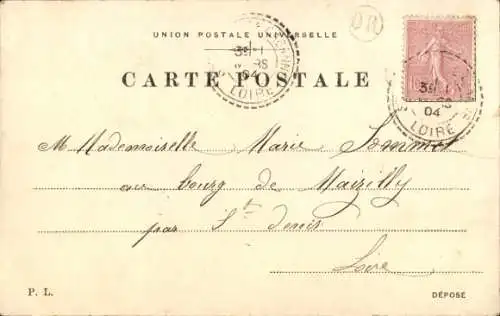 UNION POSTALE UNIVERSELLE
CARTE POSTALE
04
LOIRE
04
LOIRE
M Mademoiselle Marie Sommet
au bourg de Maizilly
par St Denis
Loire
P. L.
DÉPOSÉ